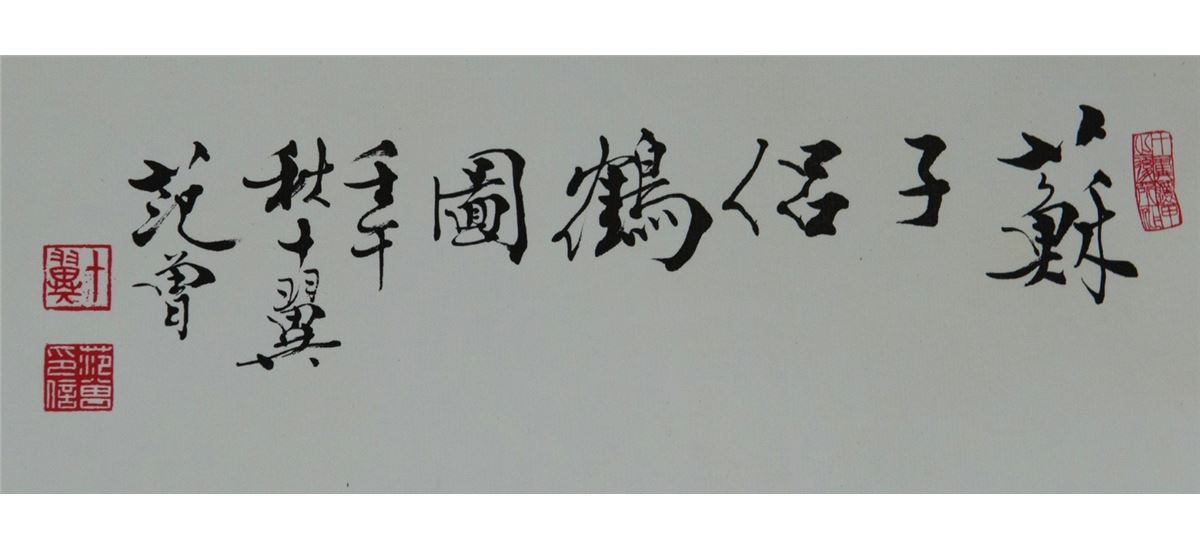 蘇子侣鶴圖
壬午
秋十翼
范曾
十翼
范曾印信